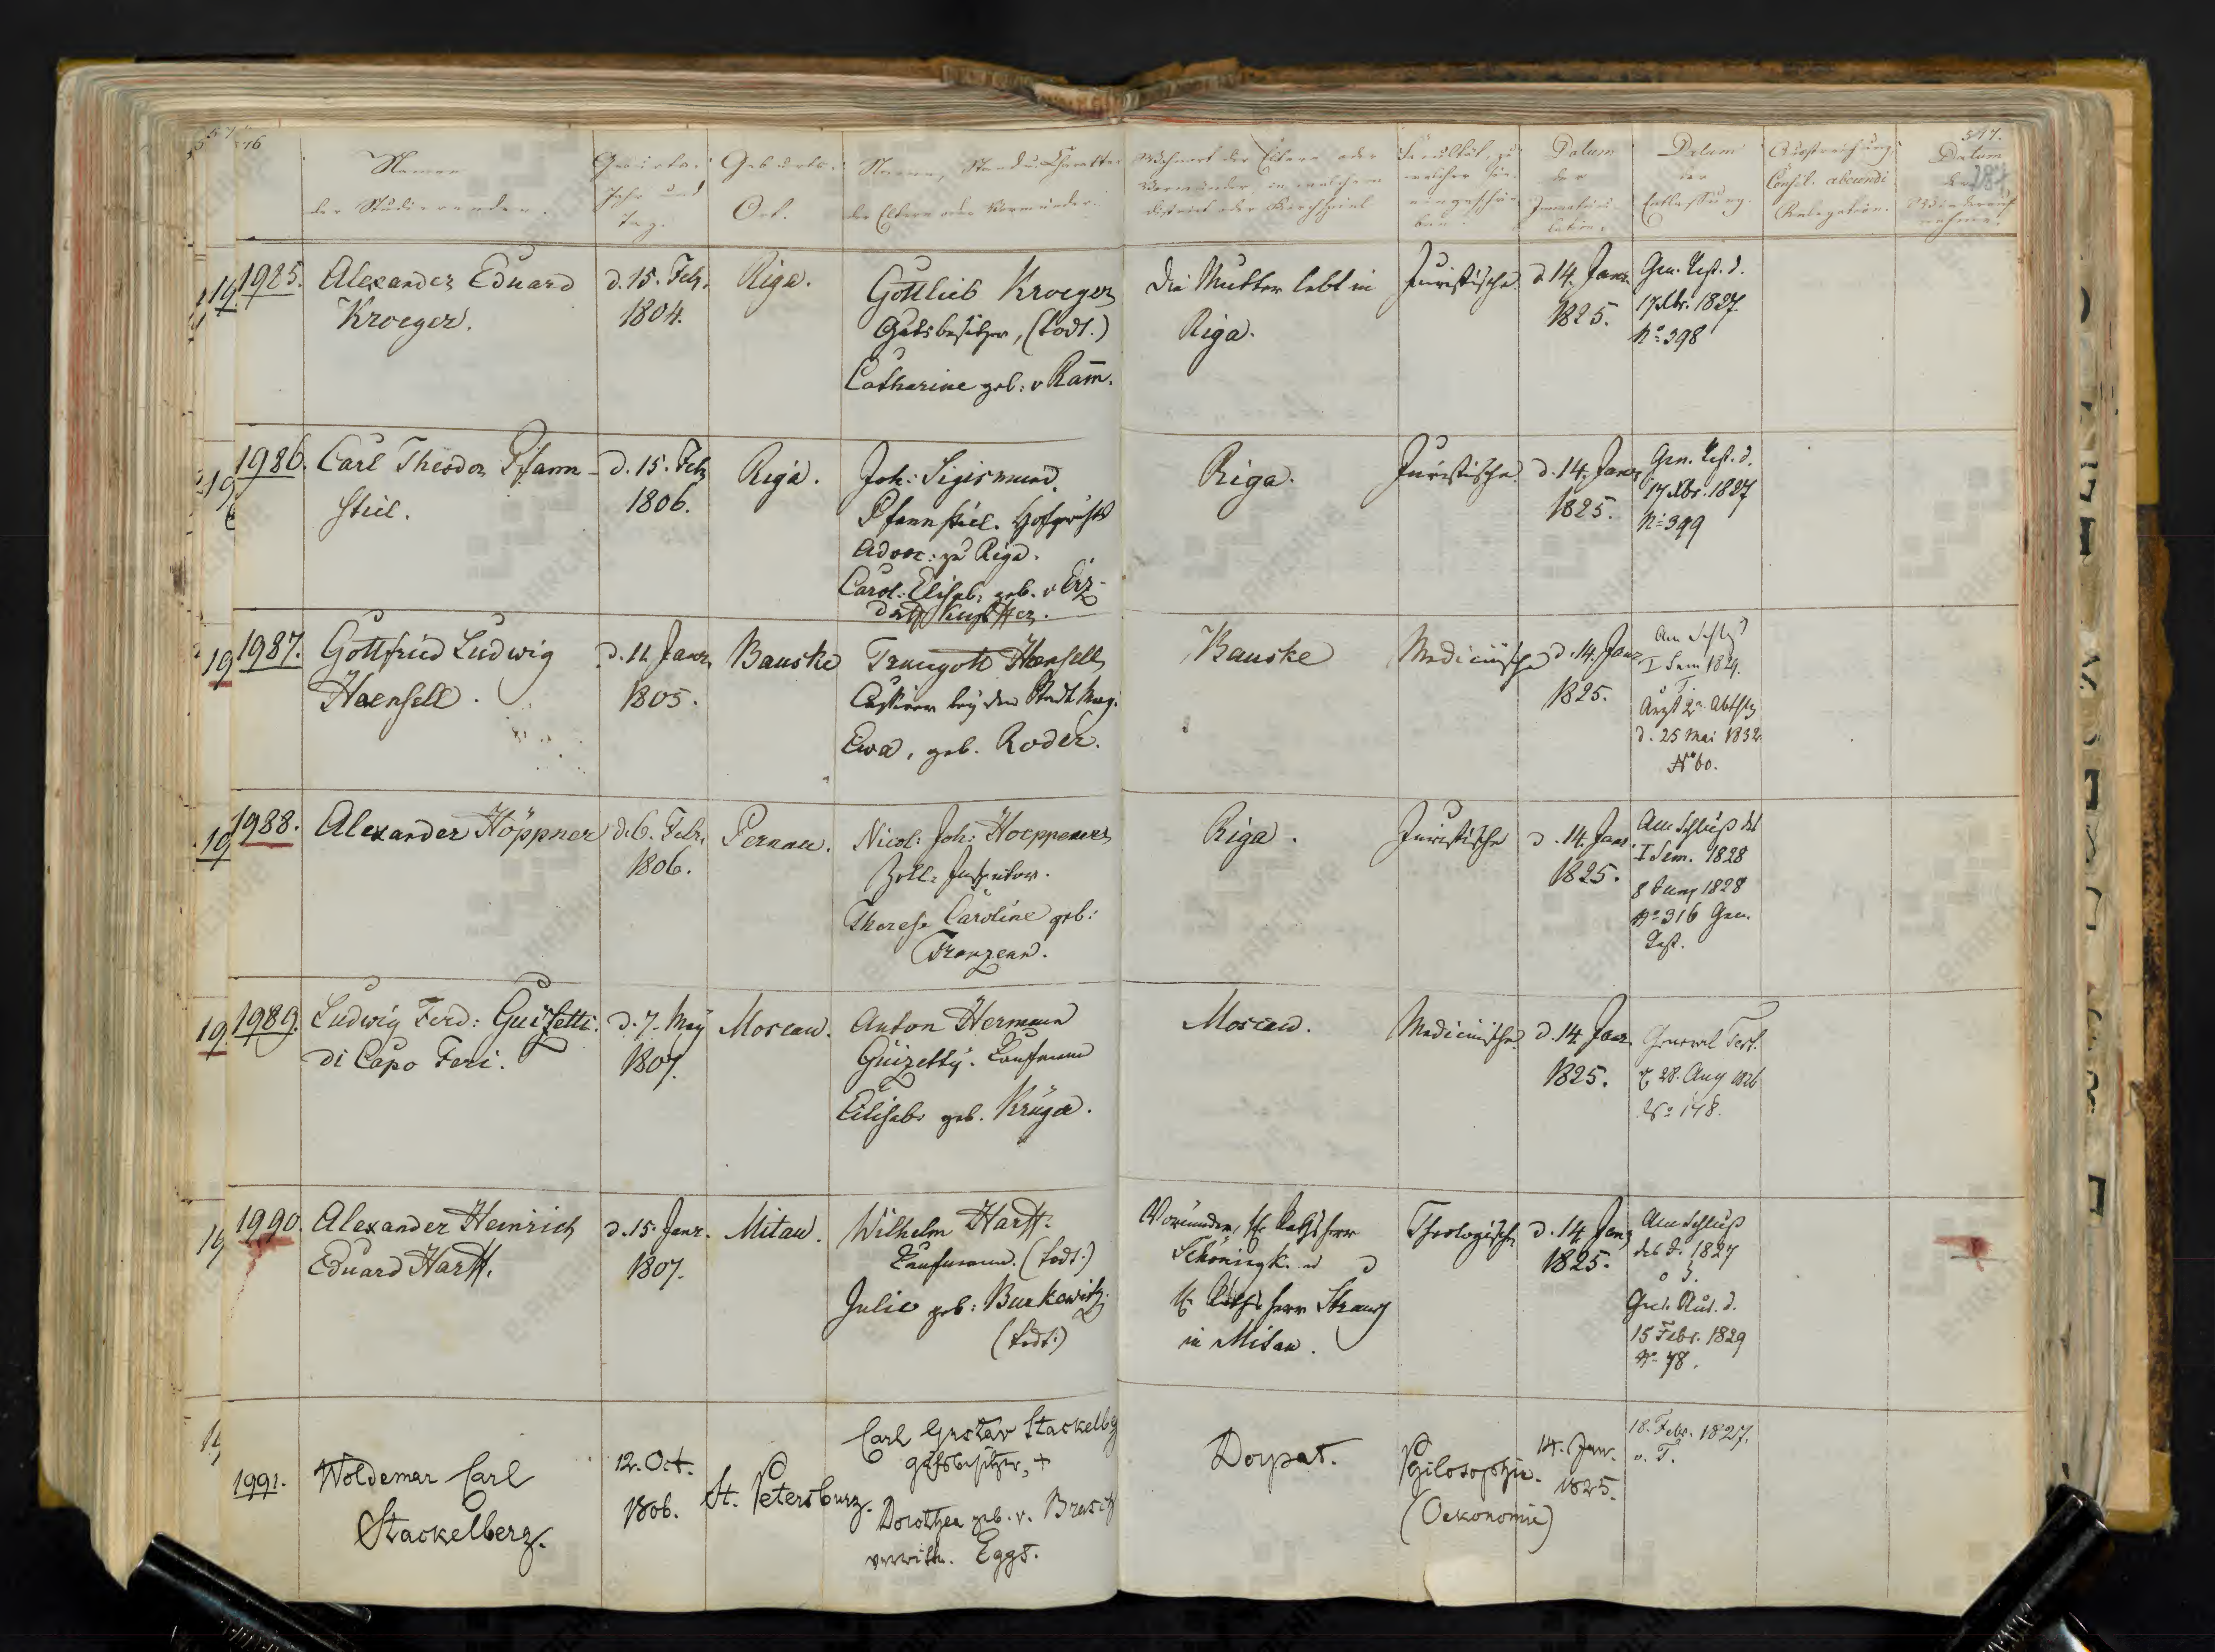 Namen
der Studierenden.
Geburts-
Jahr und
Tag.
Geburts-
Ort.
Namen, Stand u. Charakter
der Eltern oder Vormünder.
Wohnort der Eltern oder
Vormünder, in welchem
District oder Kirchspiel
Facultät, zu
welcher sie
eingeschrie-
ben.
Datum
der
Immatricu-
lation.
Datum
der
Entlassung.
Ausstreichung,
Consil. abeundi
Relegation.
Datum
der
Wiederauf-
nahme.
1985.
Alexander Eduard
Kroeger.
d. 15. Febr.
1804.
Riga.
Gottlieb Kroeger
Gutsbesitzer, (todt.)
Catharine geb: v Ram̅.
Die Mutter lebt in
Riga.
Juristische.
d 14. Janr.
1825.
Gen. Test. d.
17 Xbr. 1827
No 398
1986.
Carl Theodor Pfann-
stiel.
d. 15. Febr
1806.
Riga.
Joh: Sigismund
Pfannstiel. Hofgerichts
Advoc: zu Riga.
Carol: Elisab: geb. v
Riga.
Juristische.
d. 14. Janr
1825.
Gen. Test. d.
17 Xbr. 1827
No 399
1987.
Gottfried Ludwig
Haensell.
d. 11. Janr
1805.
Bauske
Traugott Haensell
Cassirer bey dem Stadt Mag.
Ewa, geb. Roder.
Bauske
Medicinische
d. 14. Janr
1825.
Am Schlß
I Sem 1829.
Arzt 2r. Abthlg
d. 25 Mai 1832
No 60.
1988.
Alexander Höppner
d. 6. Febr.
1806.
Pernau.
Nicol: Joh: Hoeppener
Zoll: Inspector.
Therese Caroline geb:
Franzenn.
Riga.
Juristische
d. 14. Janr
1825.
Am Schluß des
I Sem. 1828
8 Juny 1828
No 316 Gen.
Test.
1989.
Ludwig Ferd: Guizetti
di Capo Feri.
d. 7. May
1807.
Moscau.
Anton Hermann
Guizetty. Kaufmann
Elisab: geb. Krüger.
Moscau.
Medicinische.
d. 14. Janr.
1825.
General Test.
28. Aug 1826
No 148.
1990.
Alexander Heinrich
Eduard Harff.
d. 15. Janr.
1807.
Mitau.
Wilhelm Harff.
Kaufmann. (todt.)
Julie geb: Burkowitz.
(todt.)
Vormünder, H. Rathsherr
Schöningk. u
H. Rathsherr Strauz
in Mitau.
Theologische
d. 14. Janr
1825.
Am Schluß
des J. 1827
15 Febr. 1829
No 78.
1991.
Woldemar Carl
Stackelberg.
12. Oct.
1806.
St. Petersburg.
Carl Gustav Stackelbg
Gutsbesitzer, +
Dorothea geb. v. Brasch
verwittw. Eggs.
Dorpat.
Philosophie.
(Oekonomie)
14. Jan.
1825.
18. Febr. 1827.
o. T.